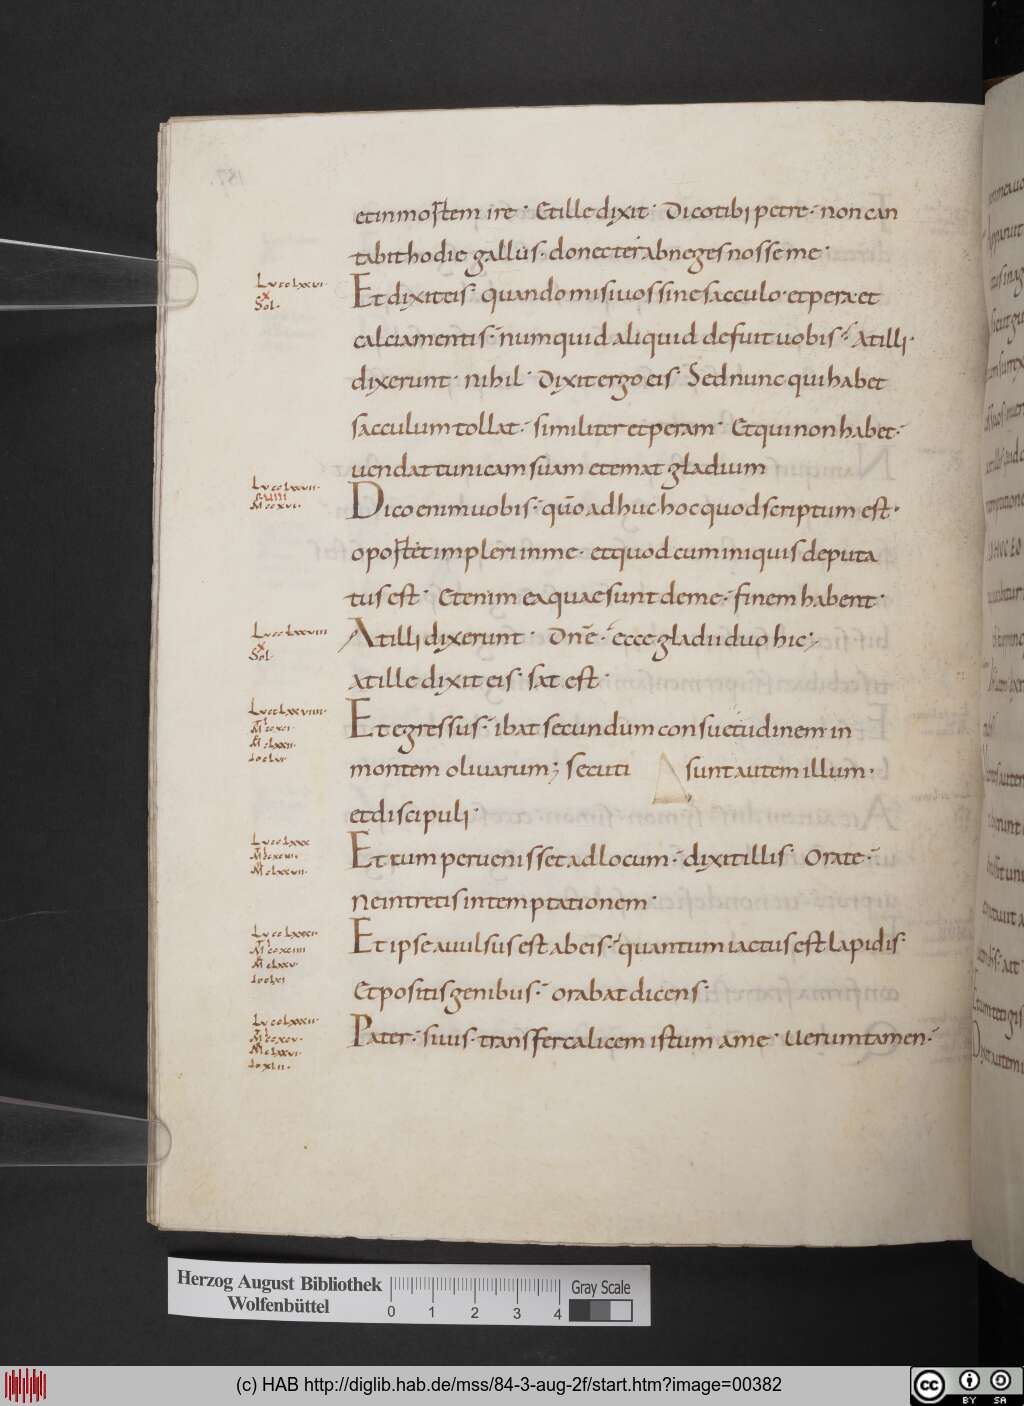 et in mortem ire· Et ille dixit· Dico tibi petre· non can
tabit hodie gallus· donec ter abneges nosse me·
Lu cclxxvi·
x
Sol·
Et dixit eis· quando misi uos sine sacculo· et pera· et
calciamentis· numquid aliquid defuit uobis· At illi·
dixerunt· nihil· Dixit ergo eis· Sed nunc qui habet
sacculum tollat· similiter et peram· Et qui non habet·
uendat tunicam suam et emat gladium
Lu cclxxvii·
viii
M ccxvi·
Dico enim uobis· qūo adhuc hoc quod scriptum est·
oportet impleri in me· et quod cum iniquis deputa
tus est· Etenim ea quae sunt de me· finem habent·
Lu cclxxviii
x
Sol·
At illi dixerunt· Dn̄e· ecce gladii duo hic;
At ille dixit eis· sat est·
Lu cclxxviiii·
Et egressus· ibat secundum consuetudinem in
montem oliuarum; secuti sunt autem illum·
et discipuli·
Lu cclxxx
Et cum peruenisset ad locum· dixit illis· Orate·
Ne intretis in temptationem·
Lu cclxxxi·
Et ipse auulsus est ab eis· quantum iactus est lapidis·
Et positis genibus· orabat dicens·
Lu cclxxxii·
Pater· si uis· transfer calicem istum a me· Uerumtamen·
Herzog August Bibliothek
Wolfenbüttel
0 1 2 3 4
Gray Scale
(c) HAB http://diglib.hab.de/mss/84-3-aug-2f/start.htm?image=00382
cc BY SA